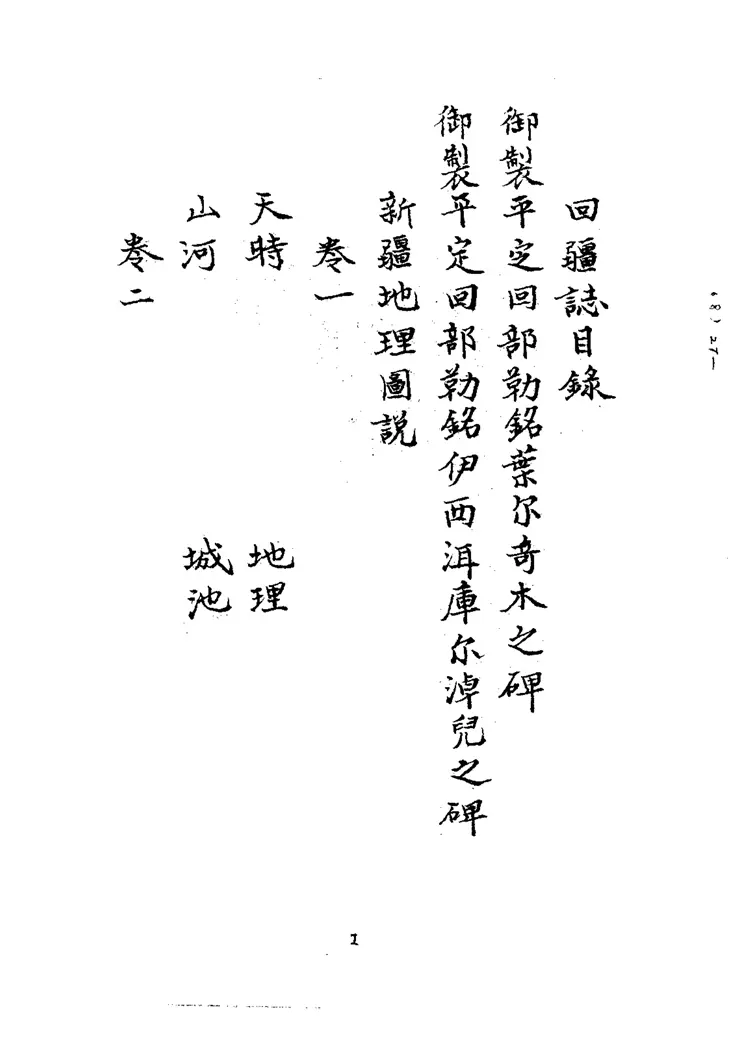 回疆誌目錄
御製平定回部勒銘葉尔奇木之碑
御製平定回部勒銘伊西洱庫尔淖兒之碑
新疆地理圖説
卷一
天時 地理
山河 城池
卷二
(8) 27—
1